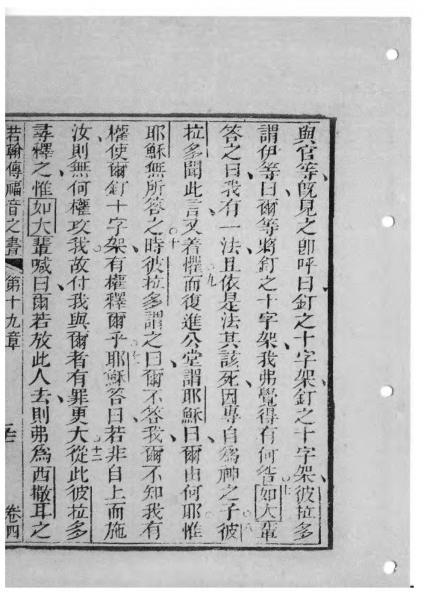 與官等旣見之卽呼曰釘之十字架釘之十字架彼拉多
謂伊等曰爾等將釘之十字架我弗覺得有何咎如大輩
答之曰我有一法且依是法其該死因專自爲神之子彼
拉多聞此言又着懼而復進公堂謂耶穌曰爾由何耶惟
耶穌無所答之時彼拉多謂之曰爾不答我爾不知我有
權使爾釘十字架有權釋爾乎耶穌答曰若非自上而施
汝則無何權攻我故付我與爾者有罪更大從此彼拉多
尋釋之惟如大輩喊曰爾若放此人去則弗爲西撒耳之
若翰傳福音之書 第十九章 卷四
七
八
九
十
十一
十二